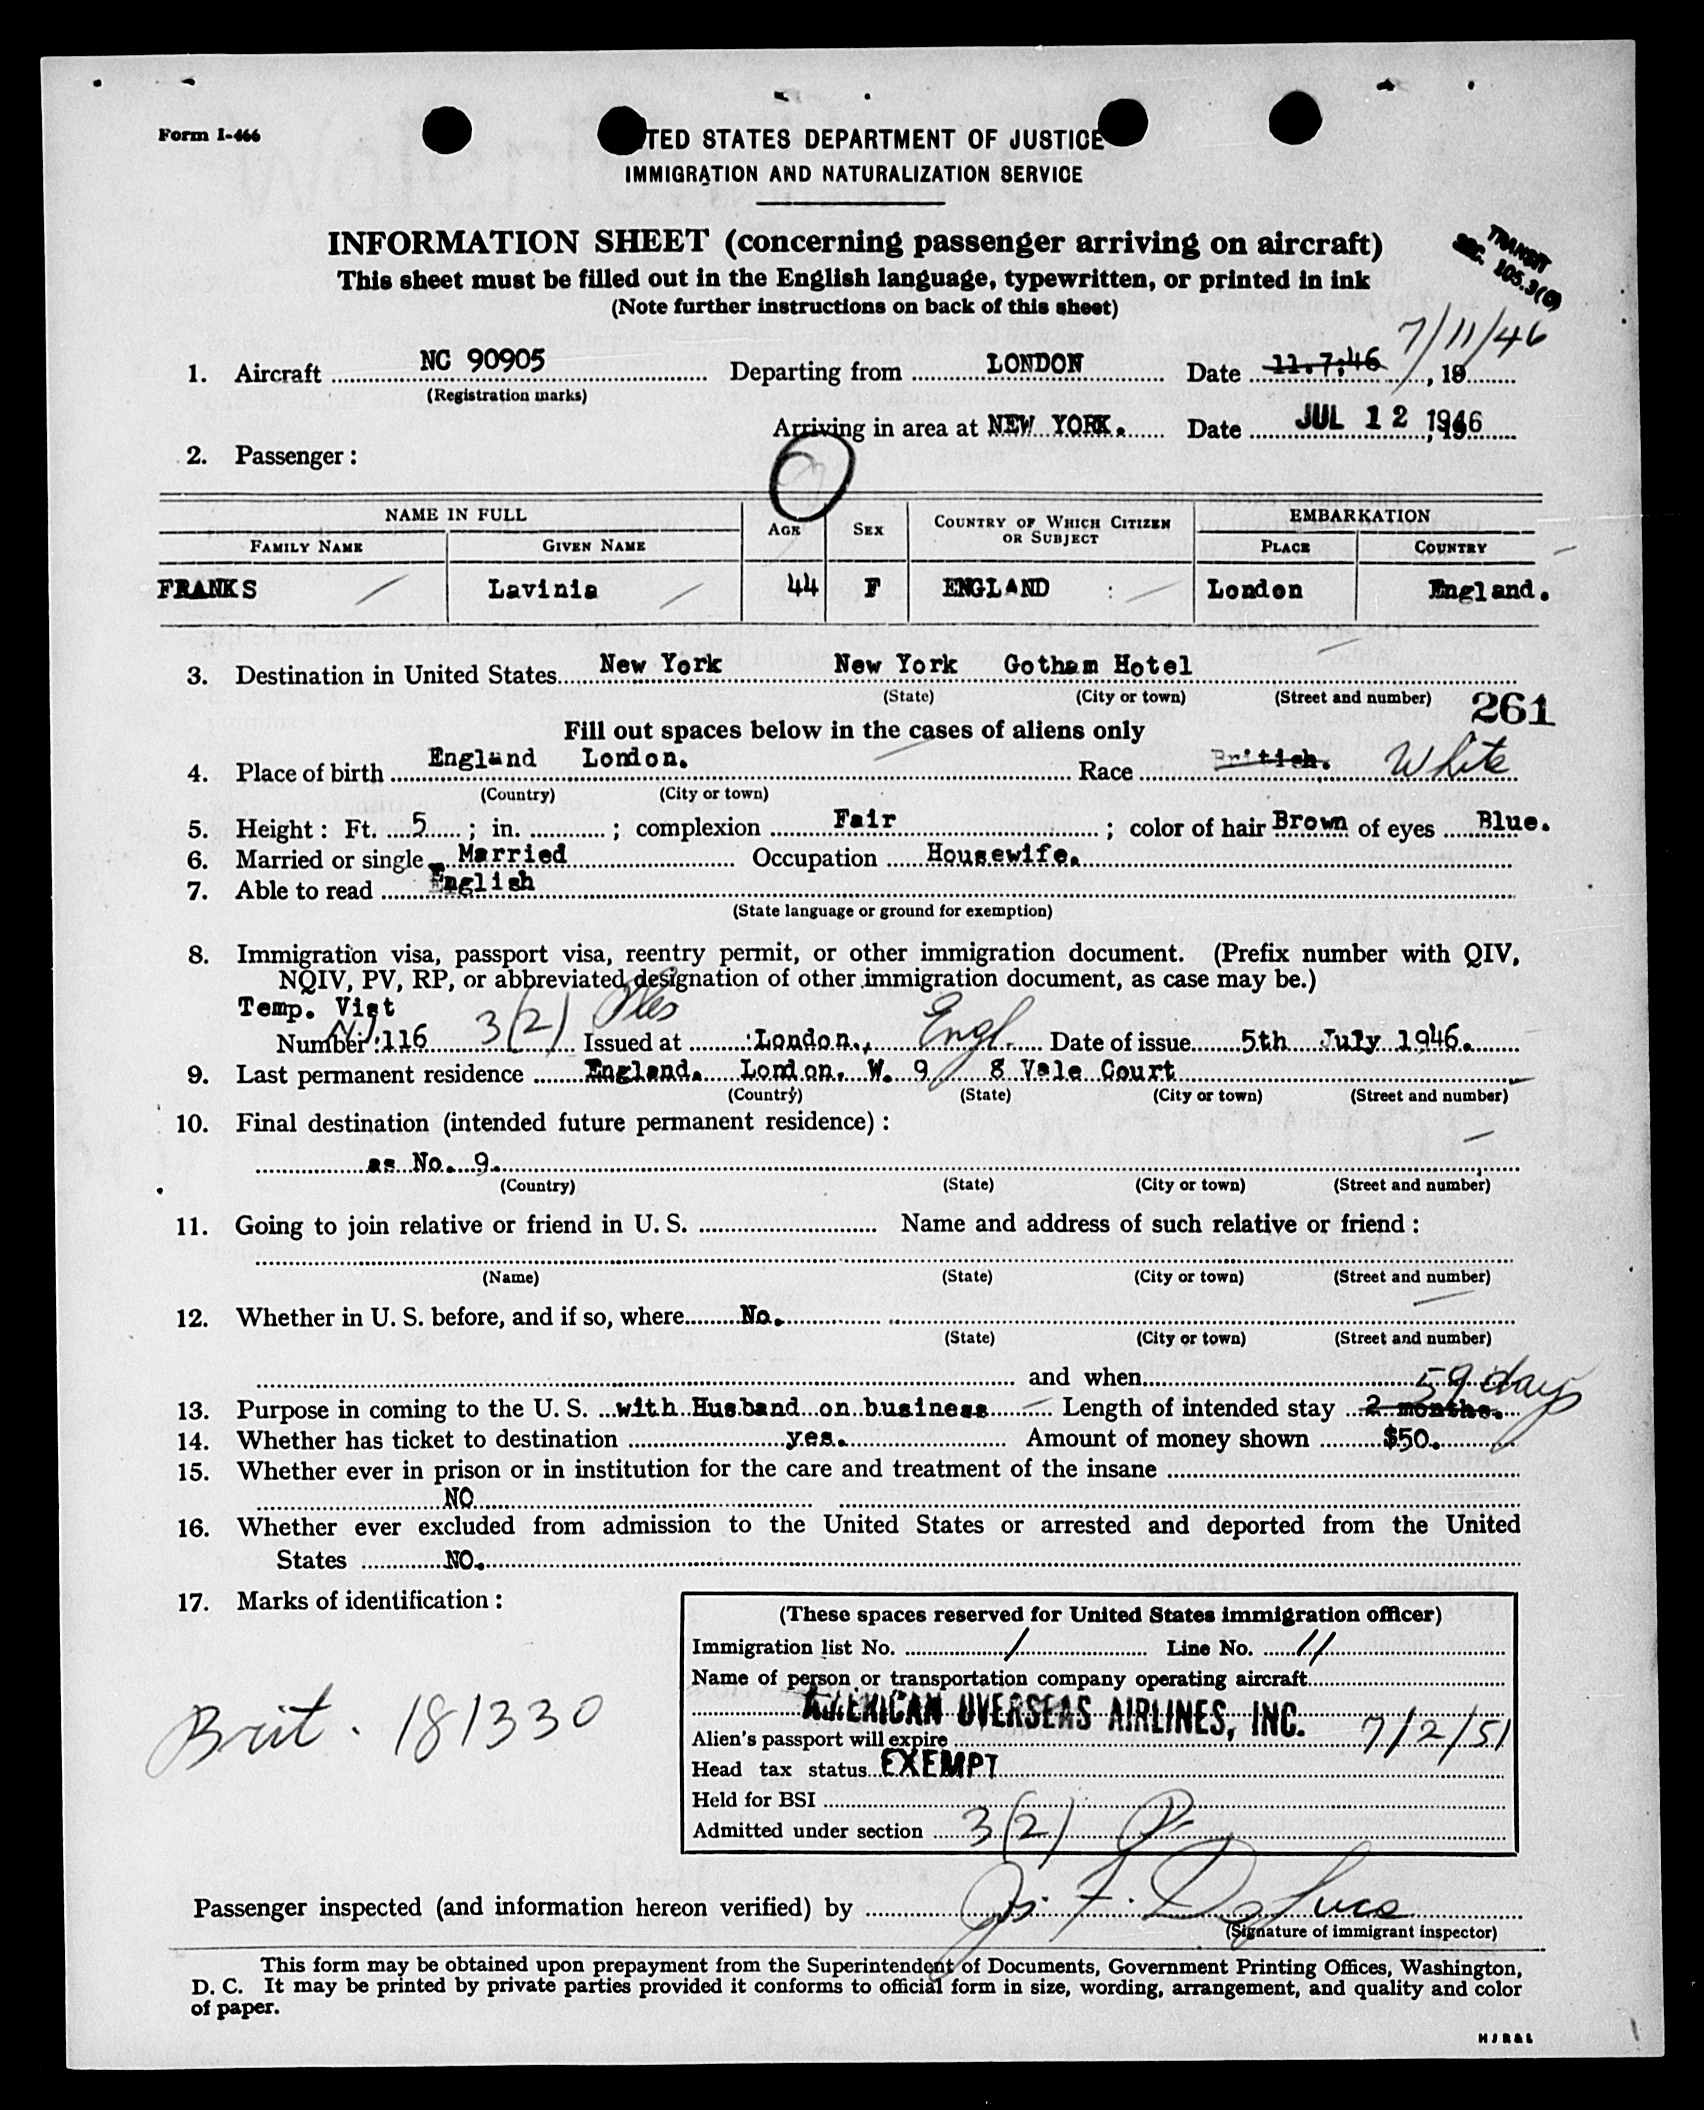 Form I-466
TED STATES DEPARTMENT OF JUSTICE
IMMIGRATION AND NATURALIZATION SERVICE
INFORMATION SHEET (concerning passenger arriving on aircraft)
This sheet must be filled out in the English language, typewritten, or printed in ink
(Note further instructions on back of this sheet)
TRANSIT
SEC. 105.3(c)
7/11/46
1. Aircraft NC 90905 Departing from LONDON Date 11.7.46, 19
(Registration marks)
Arriving in area at NEW YORK. Date JUL 12 1946
2. Passenger:
NAME IN FULL AGE SEX COUNTRY OF WHICH CITIZEN OR SUBJECT EMBARKATION
FAMILY NAME GIVEN NAME PLACE COUNTRY
FRANKS Lavinia 44 F ENGLAND London England.
3. Destination in United States New York New York Gotham Hotel
(State) (City or town) (Street and number)
261
Fill out spaces below in the cases of aliens only
4. Place of birth England London. Race British. White
(Country) (City or town)
5. Height: Ft. 5; in. ; complexion Fair; color of hair Brown of eyes Blue.
6. Married or single Married Occupation Housewife.
7. Able to read English
(State language or ground for exemption)
8. Immigration visa, passport visa, reentry permit, or other immigration document. (Prefix number with QIV,
NQIV, PV, RP, or abbreviated designation of other immigration document, as case may be.)
Temp. Vist
Number: 116 3(2) Issued at London., Engl. Date of issue 5th July 1946.
9. Last permanent residence England. London. W. 9 8 Vale Court
(Country) (State) (City or town) (Street and number)
10. Final destination (intended future permanent residence):
as No. 9.
(Country) (State) (City or town) (Street and number)
11. Going to join relative or friend in U. S. Name and address of such relative or friend:
(Name) (State) (City or town) (Street and number)
12. Whether in U. S. before, and if so, where No.
(State) (City or town) (Street and number)
and when
59 days
13. Purpose in coming to the U. S. with Husband on business Length of intended stay 2 months.
14. Whether has ticket to destination yes. Amount of money shown $50.
15. Whether ever in prison or in institution for the care and treatment of the insane
NO
16. Whether ever excluded from admission to the United States or arrested and deported from the United
States NO.
17. Marks of identification:
Brit. 181330
(These spaces reserved for United States immigration officer)
Immigration list No. 1 Line No. 11
Name of person or transportation company operating aircraft
AMERICAN OVERSEAS AIRLINES, INC.
Alien's passport will expire 7/2/51
Head tax status EXEMPT
Held for BSI
Admitted under section 3(2)
Passenger inspected (and information hereon verified) by Jos. F. DeLuca
(Signature of immigrant inspector)
This form may be obtained upon prepayment from the Superintendent of Documents, Government Printing Offices, Washington,
D. C. It may be printed by private parties provided it conforms to official form in size, wording, arrangement, and quality and color
of paper.